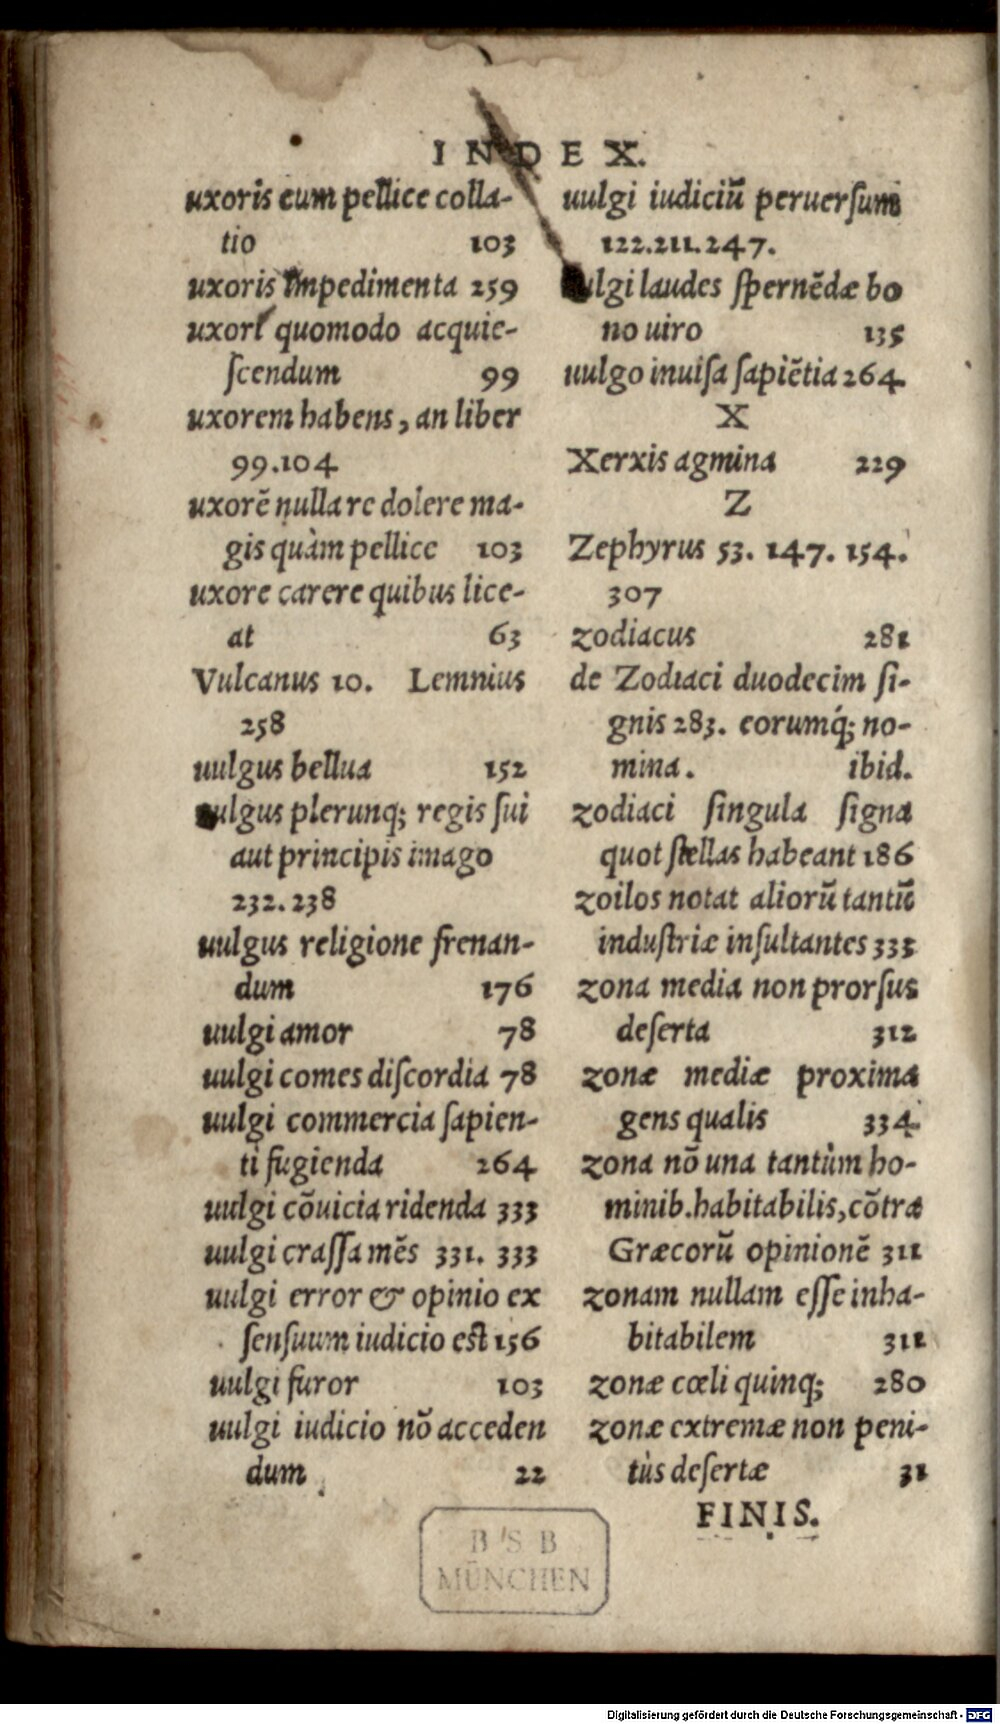 INDEX.
uxoris cum pellice colla-
tio 103
uxoris impedimenta 259
uxori quomodo acquie-
ſcendum 99
uxorem habens, an liber
99.104
uxorē nulla re dolere ma-
gis quàm pellice 103
uxore carere quibus lice-
at 63
Vulcanus 10. Lemnius
258
uulgus bellua 152
uulgus plerunq; regis ſui
aut principis imago
232.238
uulgus religione frenan-
dum 176
uulgi amor 78
uulgi comes diſcordia 78
uulgi commercia ſapien-
ti fugienda 264
uulgi cōuicia ridenda 333
uulgi craſſa mēs 331. 333
uulgi error & opinio ex
ſenſuum iudicio est 156
uulgi furor 103
uulgi iudicio nō acceden
dum 22
uulgi iudiciū peruerſum
122.211.247.
uulgi laudes ſpernēdæ bo
no uiro 135
uulgo inuiſa ſapiētia 264.
X
Xerxis agmina 229
Z
Zephyrus 53. 147. 154.
307
zodiacus 281
de Zodiaci duodecim ſi-
gnis 283. eorumq́; no-
mina. ibid.
zodiaci ſingula ſigna
quot ſtellas habeant 186
zoilos notat aliorū tantū
induſtriæ inſultantes 333
zona media non prorſus
deſerta 312
zonæ mediæ proxima
gens qualis 334.
zona nō una tantùm ho-
minib. habitabilis, cōtra
Græcorū opinionē 311
zonam nullam eſſe inha-
bitabilem 311
zonæ cœli quinq; 280
zonæ extremæ non peni-
tùs deſertæ 31
FINIS.
BSB
MÜNCHEN
Digitalisierung gefördert durch die Deutsche Forschungsgemeinschaft - DFG